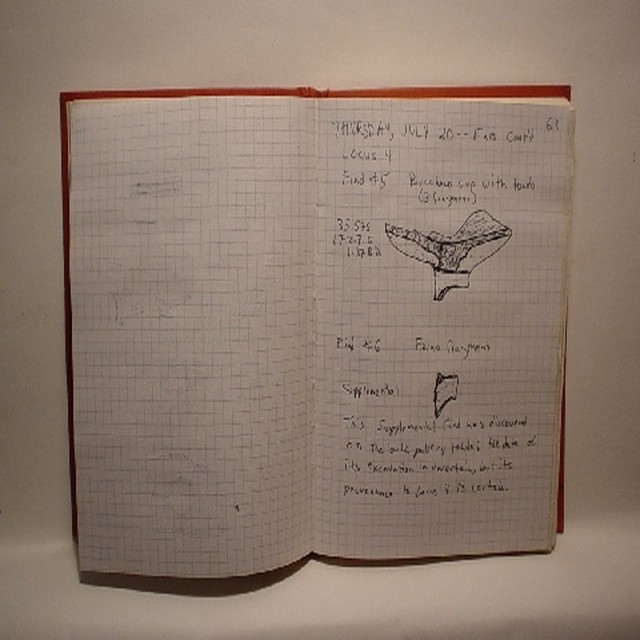 63
THURSDAY, JULY 20 -- Finds Cont'd
Locus 4
Find #5 Bucchero cup with tondo
(3 fragments)
Find #6 Faino fragment
Supplemental
This supplemental find was discovered
on the pottery tables; the date of
its excavation is uncertain, but its
provenance to Locus is certain.